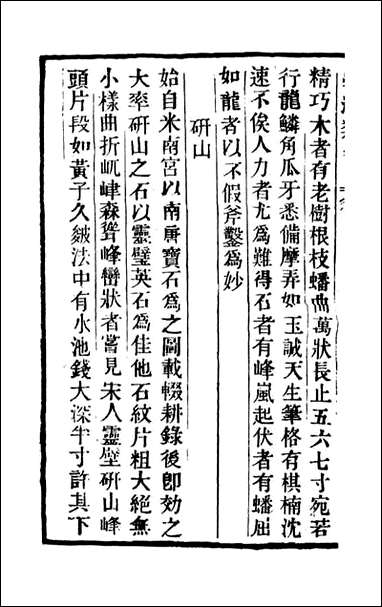 精巧木者有老樹根枝蟠曲萬狀長止五六七寸宛若
行龍鱗角瓜牙悉備摩弄如玉誠天生筆格有棋楠沈
速不俟人力者尤為難得石者有峰嵐起伏者有蟠屈
如龍者以不假斧鑿為妙
研山
始自米南宮以南唐寶石為之圖載輟耕錄後卽効之
大率研山之石以靈璧英石為佳他石紋片粗大絕無
小樣曲折屼嵂森聳峰巒狀者嘗見宋人靈壁研山峰
頭片段如黃子久皴法中有水池錢大深半寸許其下